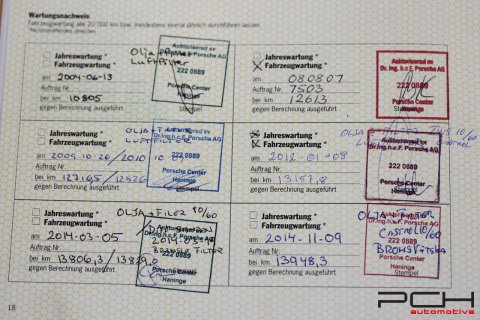 Wartungsnachweis
Fahrzeugwartung alle 20 000 km bzw. mindestens einmal jährlich durchführen lassen.
*Nichtzutreffendes streichen
Jahreswartung *
Fahrzeugwartung *
am 2004-06-13
Auftrag Nr.
bei km 10805
gegen Berechnung ausgeführt
Olja +
Luftfilter
Auktoriserad av
Dr. Ing. h.c.F. Porsche AG
222 0889
Porsche Center
Haninge
Stempel
Jahreswartung *
X Fahrzeugwartung *
am 080807
Auftrag Nr. 7503
bei km 12613
gegen Berechnung ausgeführt
Auktoriserad av
Dr. Ing. h.c.F. Porsche AG
222 0889
Porsche Center
Haninge
Stempel
Jahreswartung *
Fahrzeugwartung *
am 2009-10-26/2010
Auftrag Nr.
bei km
gegen Berechnung ausgeführt
OLJA+FILTER
LUFTFILTER
Auktoriserad av
Dr.Ing.h.c.F. Porsche AG
222 0889
Porsche Center
Haninge
Jahreswartung *
Fahrzeugwartung *
am 2012-01-08
Auftrag Nr.
bei km 13157,8
gegen Berechnung ausgeführt
OLJA 10/60
Auktoriserad av
Dr.Ing.h.c.F. Porsche AG
222 0889
Porsche Center
Haninge
Jahreswartung *
Fahrzeugwartung *
am 2014-03-05
Auftrag Nr.
bei km 13806,3/13829,0
gegen Berechnung ausgeführt
OLJA + FILTER 10/60
BRÄNSLEFILTER
222 0889
Porsche Center
Haninge
Jahreswartung *
Fahrzeugwartung *
am 2014-11-09
Auftrag Nr.
bei km 13948,3
gegen Berechnung ausgeführt
OLJA+FILTER
CASTROL 10/60
BROMSVÄTSKA
Dr.Ing.h.c.F. Porsche AG
222 0889
Porsche Center
Haninge
Stempel
18
PCH
automotive